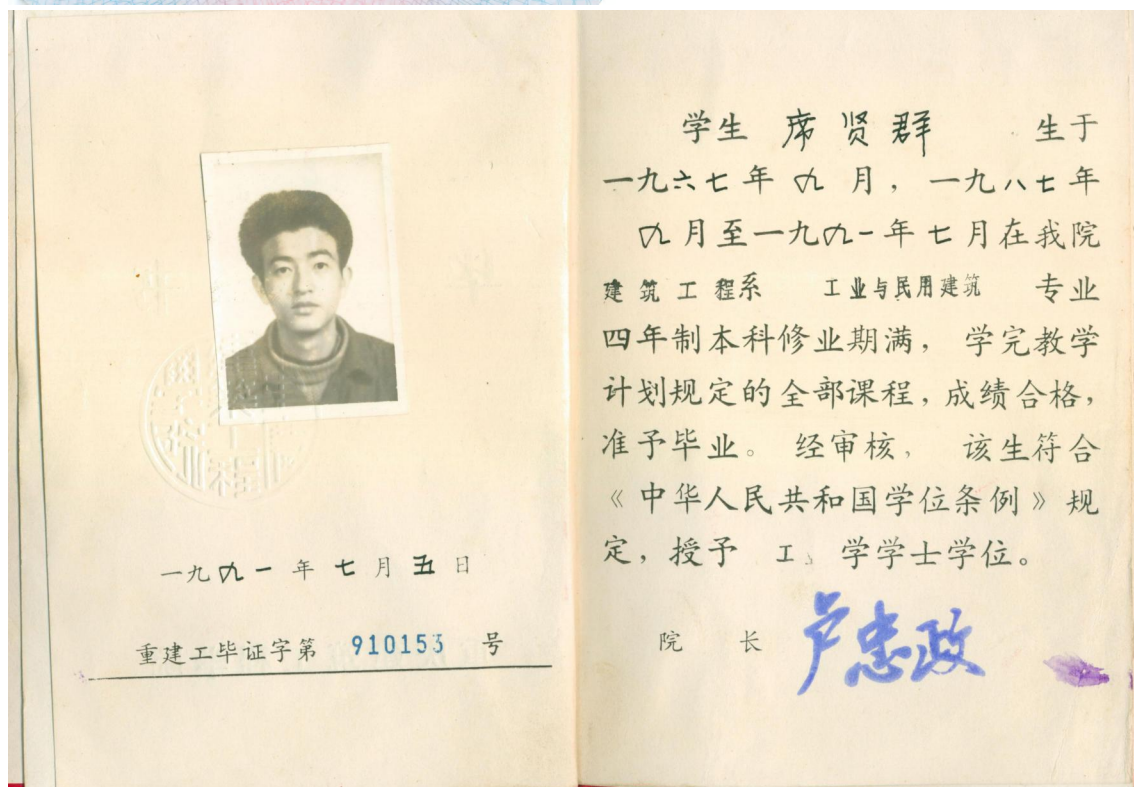 一九九一年七月五日
重建工毕证字第 910153 号
学生 席贤群 生于
一九六七年九月，一九八七年
九月至一九九一年七月在我院
建筑工程系 工业与民用建筑 专业
四年制本科修业期满，学完教学
计划规定的全部课程，成绩合格，
准予毕业。经审核，该生符合
《中华人民共和国学位条例》规
定，授予 工 学学士学位。
院 长 卢忠政